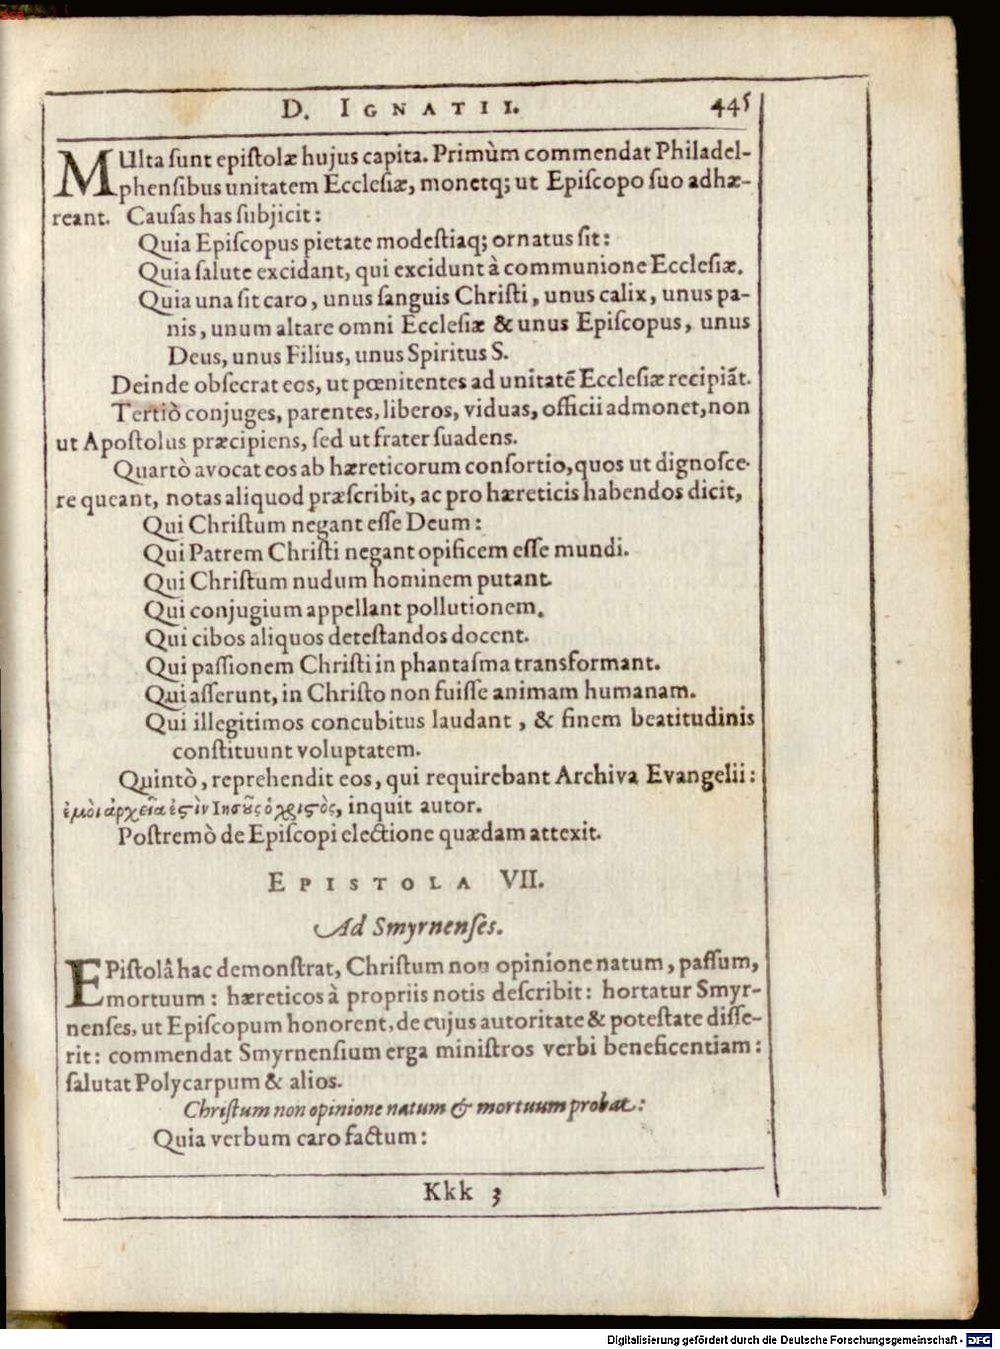 D. IGNATII. 445
MUlta sunt epistolæ hujus capita. Primùm commendat Philadel-
phensibus unitatem Ecclesiæ, monetq; ut Episcopo suo adhæ-
reant. Causas has subjicit:
Quia Episcopus pietate modestiaq; ornatus sit:
Quia salute excidant, qui excidunt à communione Ecclesiæ.
Quia una sit caro, unus sanguis Christi, unus calix, unus pa-
nis, unum altare omni Ecclesiæ & unus Episcopus, unus
Deus, unus Filius, unus Spiritus S.
Deinde obsecrat eos, ut pœnitentes ad unitatẽ Ecclesiæ recipiãt.
Tertiò conjuges, parentes, liberos, viduas, officii admonet, non
ut Apostolus præcipiens, sed ut frater suadens.
Quartò avocat eos ab hæreticorum consortio, quos ut dignosce-
re queant, notas aliquod præscribit, ac pro hæreticis habendos dicit,
Qui Christum negant esse Deum:
Qui Patrem Christi negant opificem esse mundi.
Qui Christum nudum hominem putant.
Qui conjugium appellant pollutionem.
Qui cibos aliquos detestandos docent.
Qui passionem Christi in phantasma transformant.
Qui asserunt, in Christo non fuisse animam humanam.
Qui illegitimos concubitus laudant, & finem beatitudinis
constituunt voluptatem.
Quintò, reprehendit eos, qui requirebant Archiva Evangelii:
ἐμοὶ ἀρχεῖα ἐστὶν Ιησοῦς ὁ χριστὸς, inquit autor.
Postremò de Episcopi electione quædam attexit.
EPISTOLA VII.
Ad Smyrnenses.
EPistolâ hac demonstrat, Christum non opinione natum, passum,
mortuum: hæreticos à propriis notis describit: hortatur Smyr-
nenses, ut Episcopum honorent, de cujus autoritate & potestate disse-
rit: commendat Smyrnensium erga ministros verbi beneficentiam:
salutat Polycarpum & alios.
Christum non opinione natum & mortuum probat:
Quia verbum caro factum:
Kkk 3
Digitalisierung gefördert durch die Deutsche Forschungsgemeinschaft - DFG